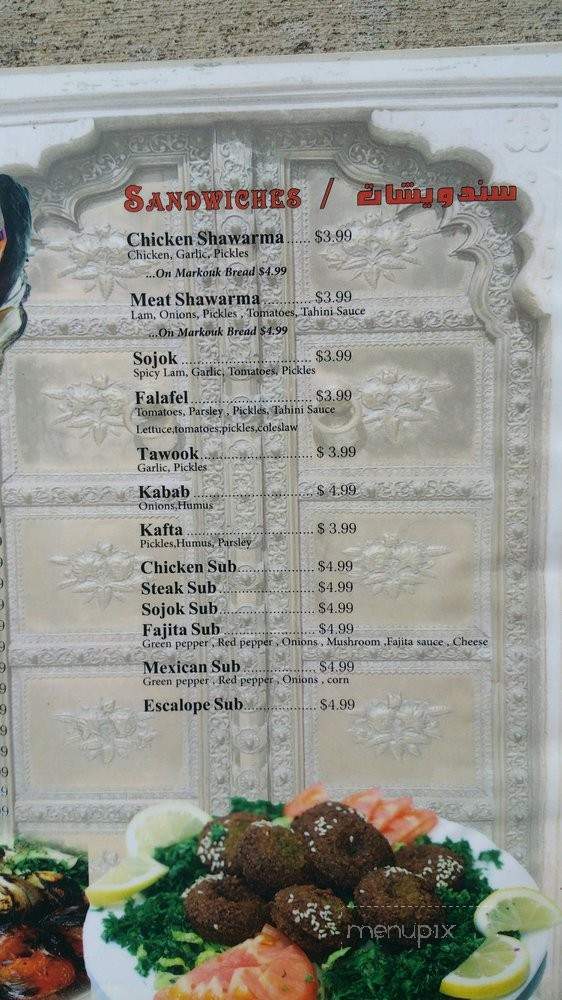 SANDWICHES / سندويشات
Chicken Shawarma ...... $3.99
Chicken, Garlic, Pickles
...On Markouk Bread $4.99
Meat Shawarma ............ $3.99
Lam, Onions, Pickles , Tomatoes, Tahini Sauce
...On Markouk Bread $4.99
Sojok ................................ $3.99
Spicy Lam, Garlic, Tomatoes, Pickles
Falafel .............................. $3.99
Tomatoes, Parsley , Pickles, Tahini Sauce
Lettuce,tomatoes,pickles,coleslaw
Tawook............................ $ 3.99
Garlic, Pickles
Kabab .............................. $ 4.99
Onions,Humus
Kafta ................................ $ 3.99
Pickles,Humus, Parsley
Chicken Sub.................... $4.99
Steak Sub......................... $4.99
Sojok Sub........................ $4.99
Fajita Sub ....................... $4.99
Green pepper , Red pepper , Onions , Mushroom ,Fajita sauce , Cheese
Mexican Sub................... $4.99
Green pepper , Red pepper , Onions , corn
Escalope Sub.................. $4.99
menupix